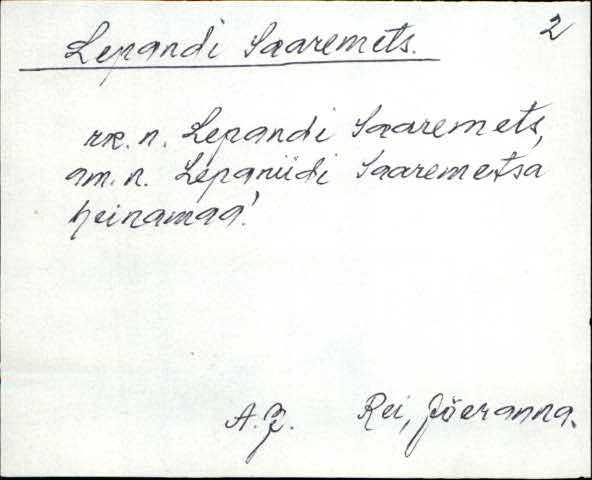 2
Lepandi Saaremets.
rk. n. Lepandi Saaremets,
am. n. Lepaniidi Saaremetsa
heinamaa!
A. J. Rei, Jõeranna.